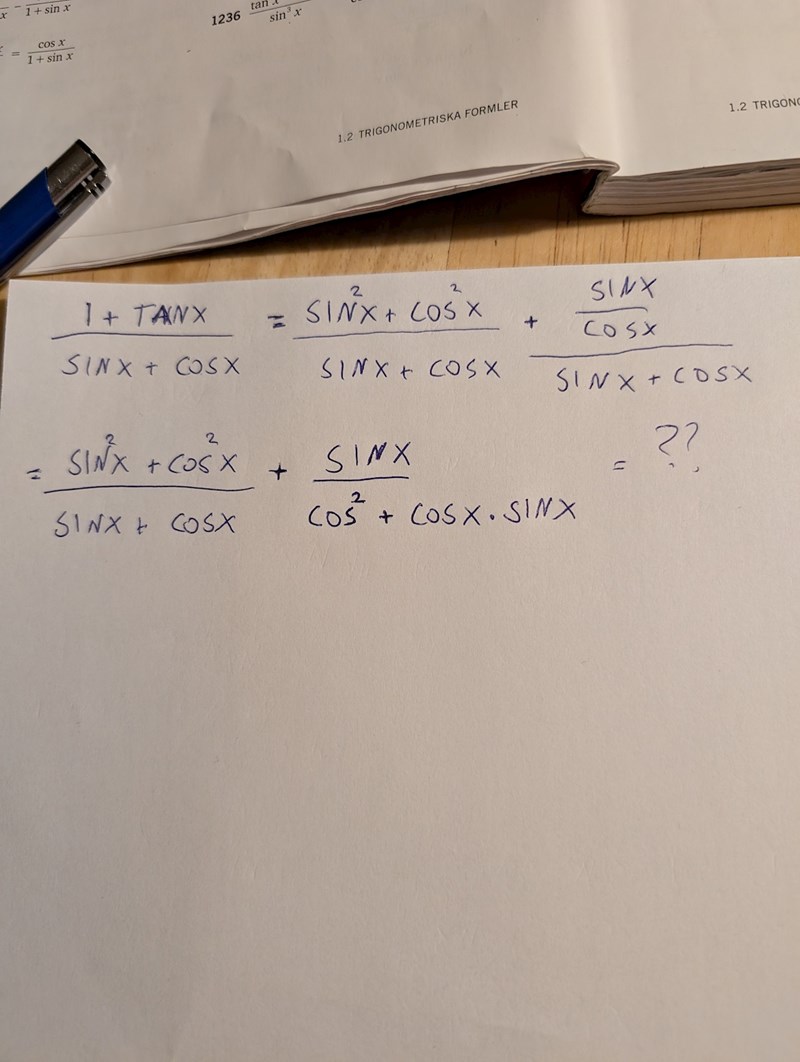 1 + sin x
= cos x / 1 + sin x
1236 tan x / sin³ x
1.2 TRIGONOMETRISKA FORMLER
1.2
1 + TANX / SINX + COSX = SIN²X + COS²X / SINX + COSX + SINX / COSX / SINX + COSX
= SIN²X + COS²X / SINX + COSX + SINX / COS² + COSX · SINX = ??